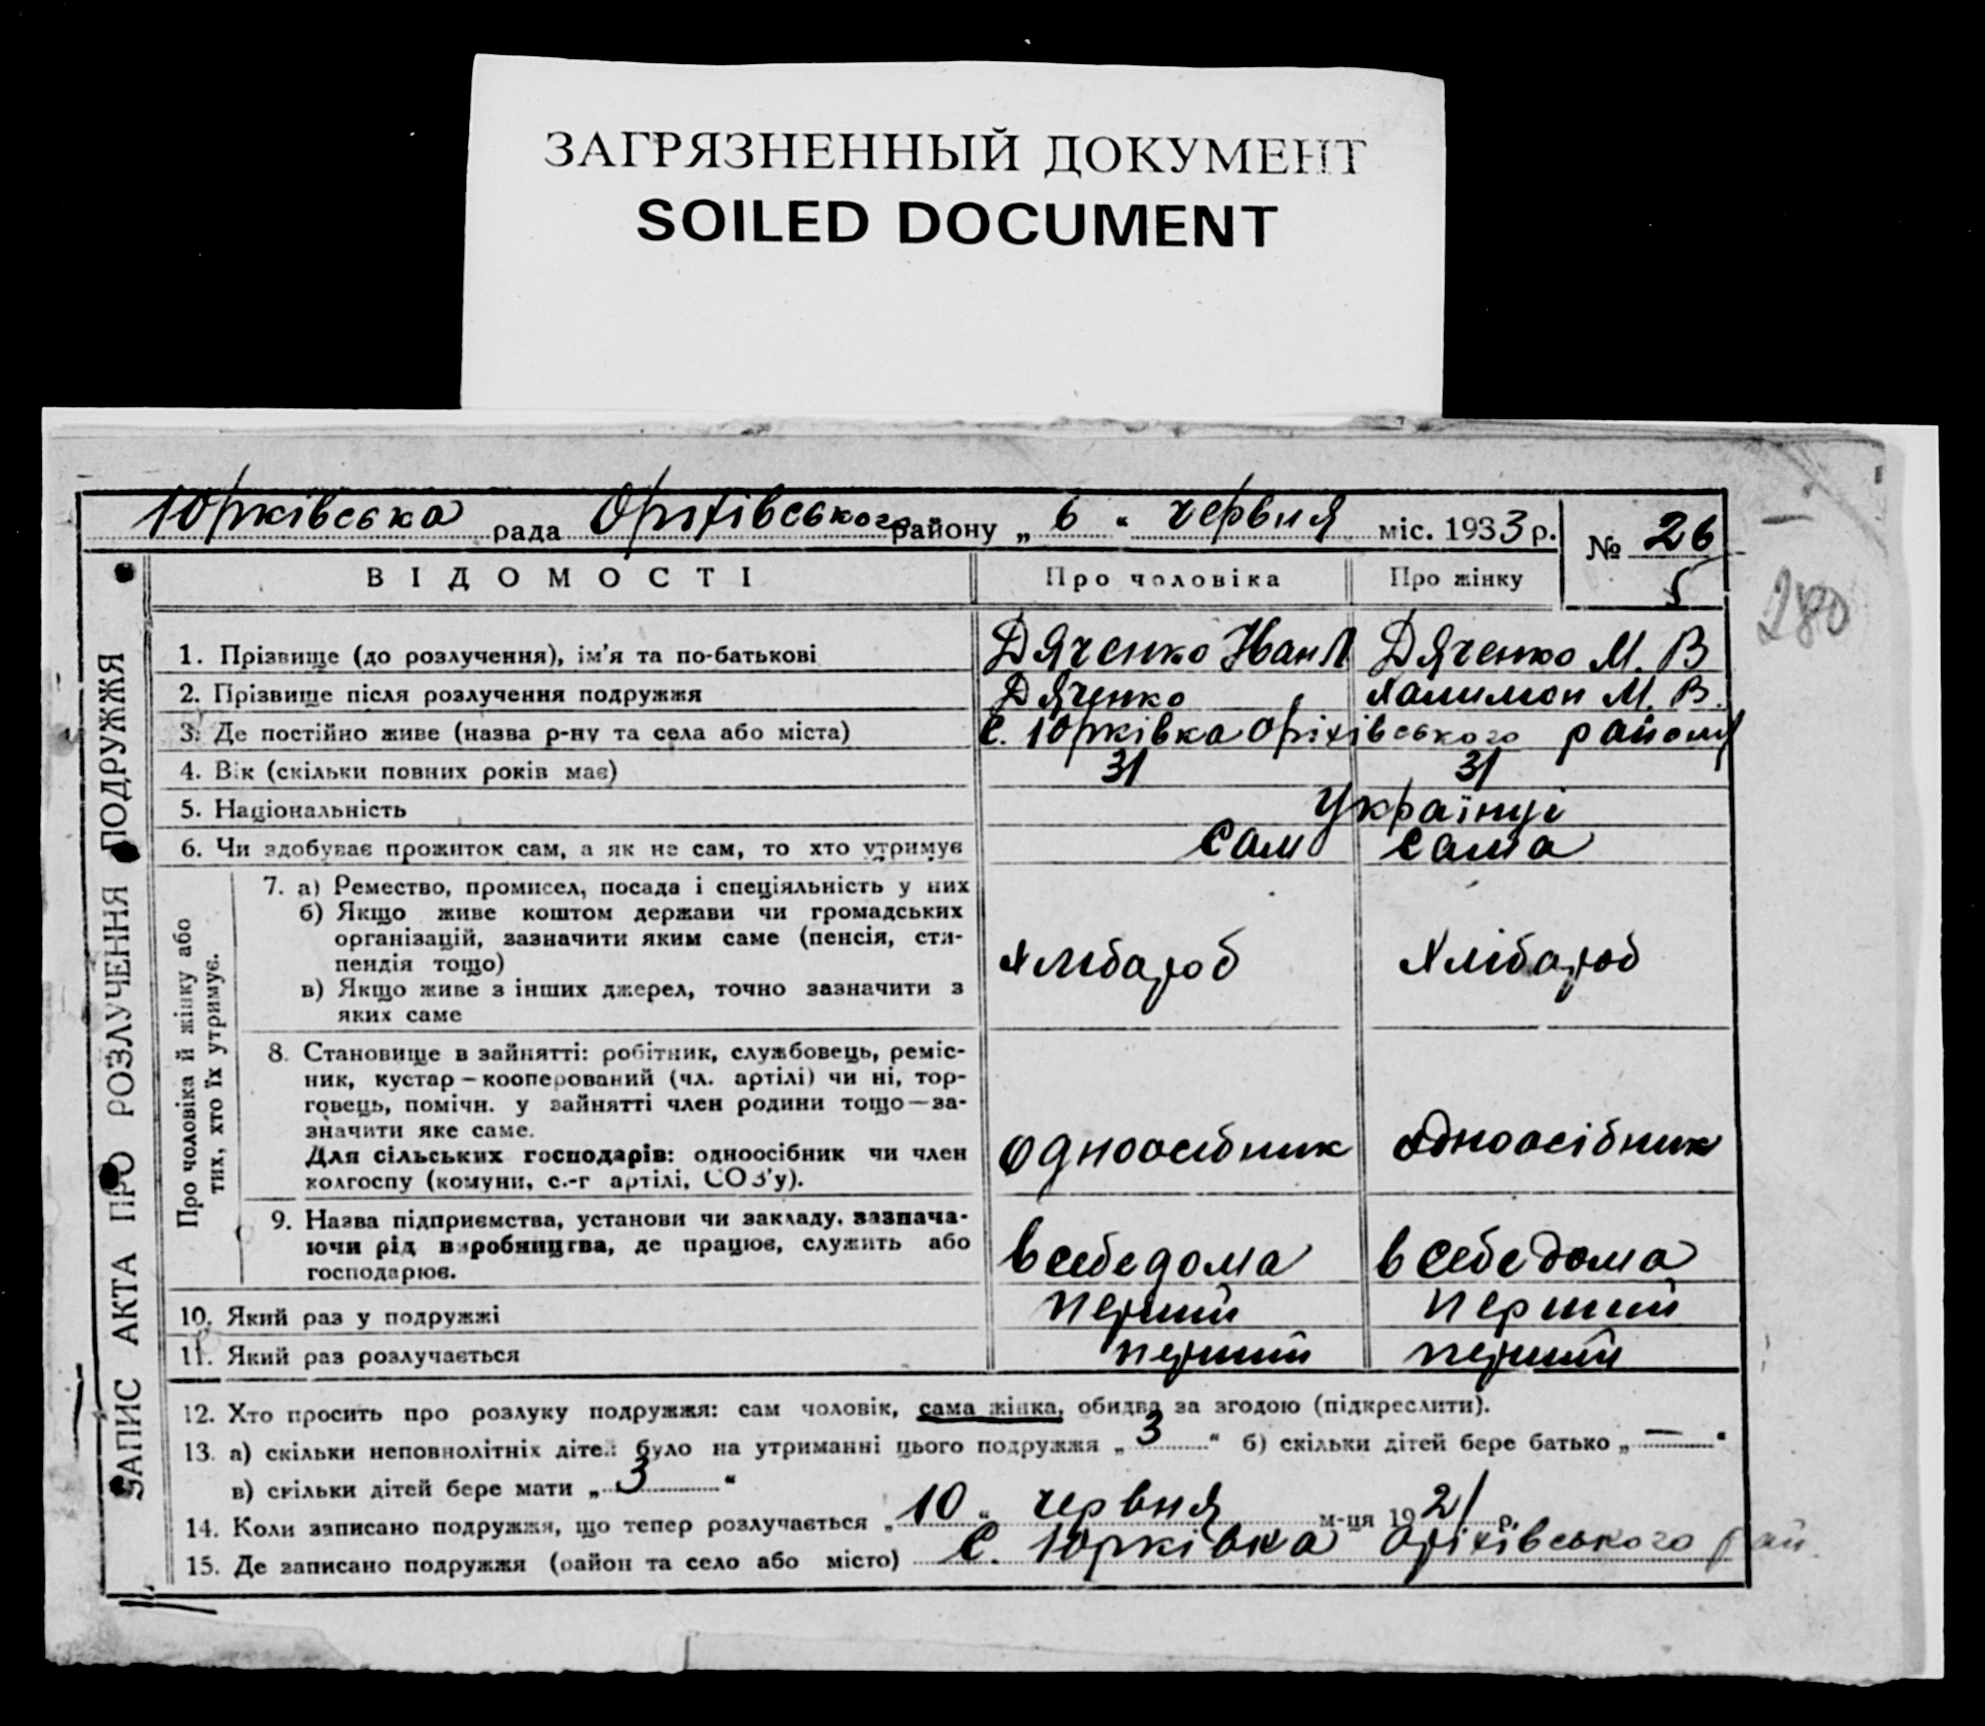 ЗАГРЯЗНЕННЫЙ ДОКУМЕНТ
SOILED DOCUMENT
Юрківська рада Оріхівського району „ 6 “ червня міс. 1933 р.
№ 26
5
280
ЗАПИС АКТА ПРО РОЗЛУЧЕННЯ ПОДРУЖЖЯ
ВІДОМОСТІ Про чоловіка Про жінку
1. Прізвище (до розлучення), ім'я та по-батькові Дяченко Иван Л Дяченко М. В
2. Прізвище після розлучення подружжя Дяченко Халимон М. В.
3. Де постійно живе (назва р-ну та села або міста) С. Юрківка Оріхівського району
4. Вік (скільки повних років має) 31 31
5. Національність Українці
6. Чи здобуває прожиток сам, а як не сам, то хто утримує Сам Сама
Про чоловіка й жінку або
тих, хто їх утримує.
7. а) Ремество, промисел, посада і спеціяльність у них
б) Якщо живе коштом держави чи громадських
організацій, зазначити яким саме (пенсія, сти-
пендія тощо)
в) Якщо живе з інших джерел, точно зазначити з
яких саме
Хлібароб Хлібароб
8. Становище в зайнятті: робітник, службовець, реміс-
ник, кустар — кооперований (чл. артілі) чи ні, тор-
говець, помічн. у зайнятті член родини тощо — за-
значити яке саме.
Для сільських господарів: одноосібник чи член
колгоспу (комуни, с.-г артілі, СОЗ'у).
одноосібник одноосібник
9. Назва підприємства, установи чи закладу, зазнача-
ючи рід виробництва, де працює, служить або
господарює.
в себе дома в себе дома
10. Який раз у подружжі перший перший
11. Який раз розлучається перший перший
12. Хто просить про розлуку подружжя: сам чоловік, сама жінка, обидва за згодою (підкреслити).
13. а) скільки неповнолітніх дітей було на утриманні цього подружжя „ 3 “ б) скільки дітей бере батько „ — “
в) скільки дітей бере мати „ 3 “
14. Коли записано подружжя, що тепер розлучається „ 10 “ червня м-ця 1921 р.
15. Де записано подружжя (район та село або місто) С. Юрківка Оріхівського рай.